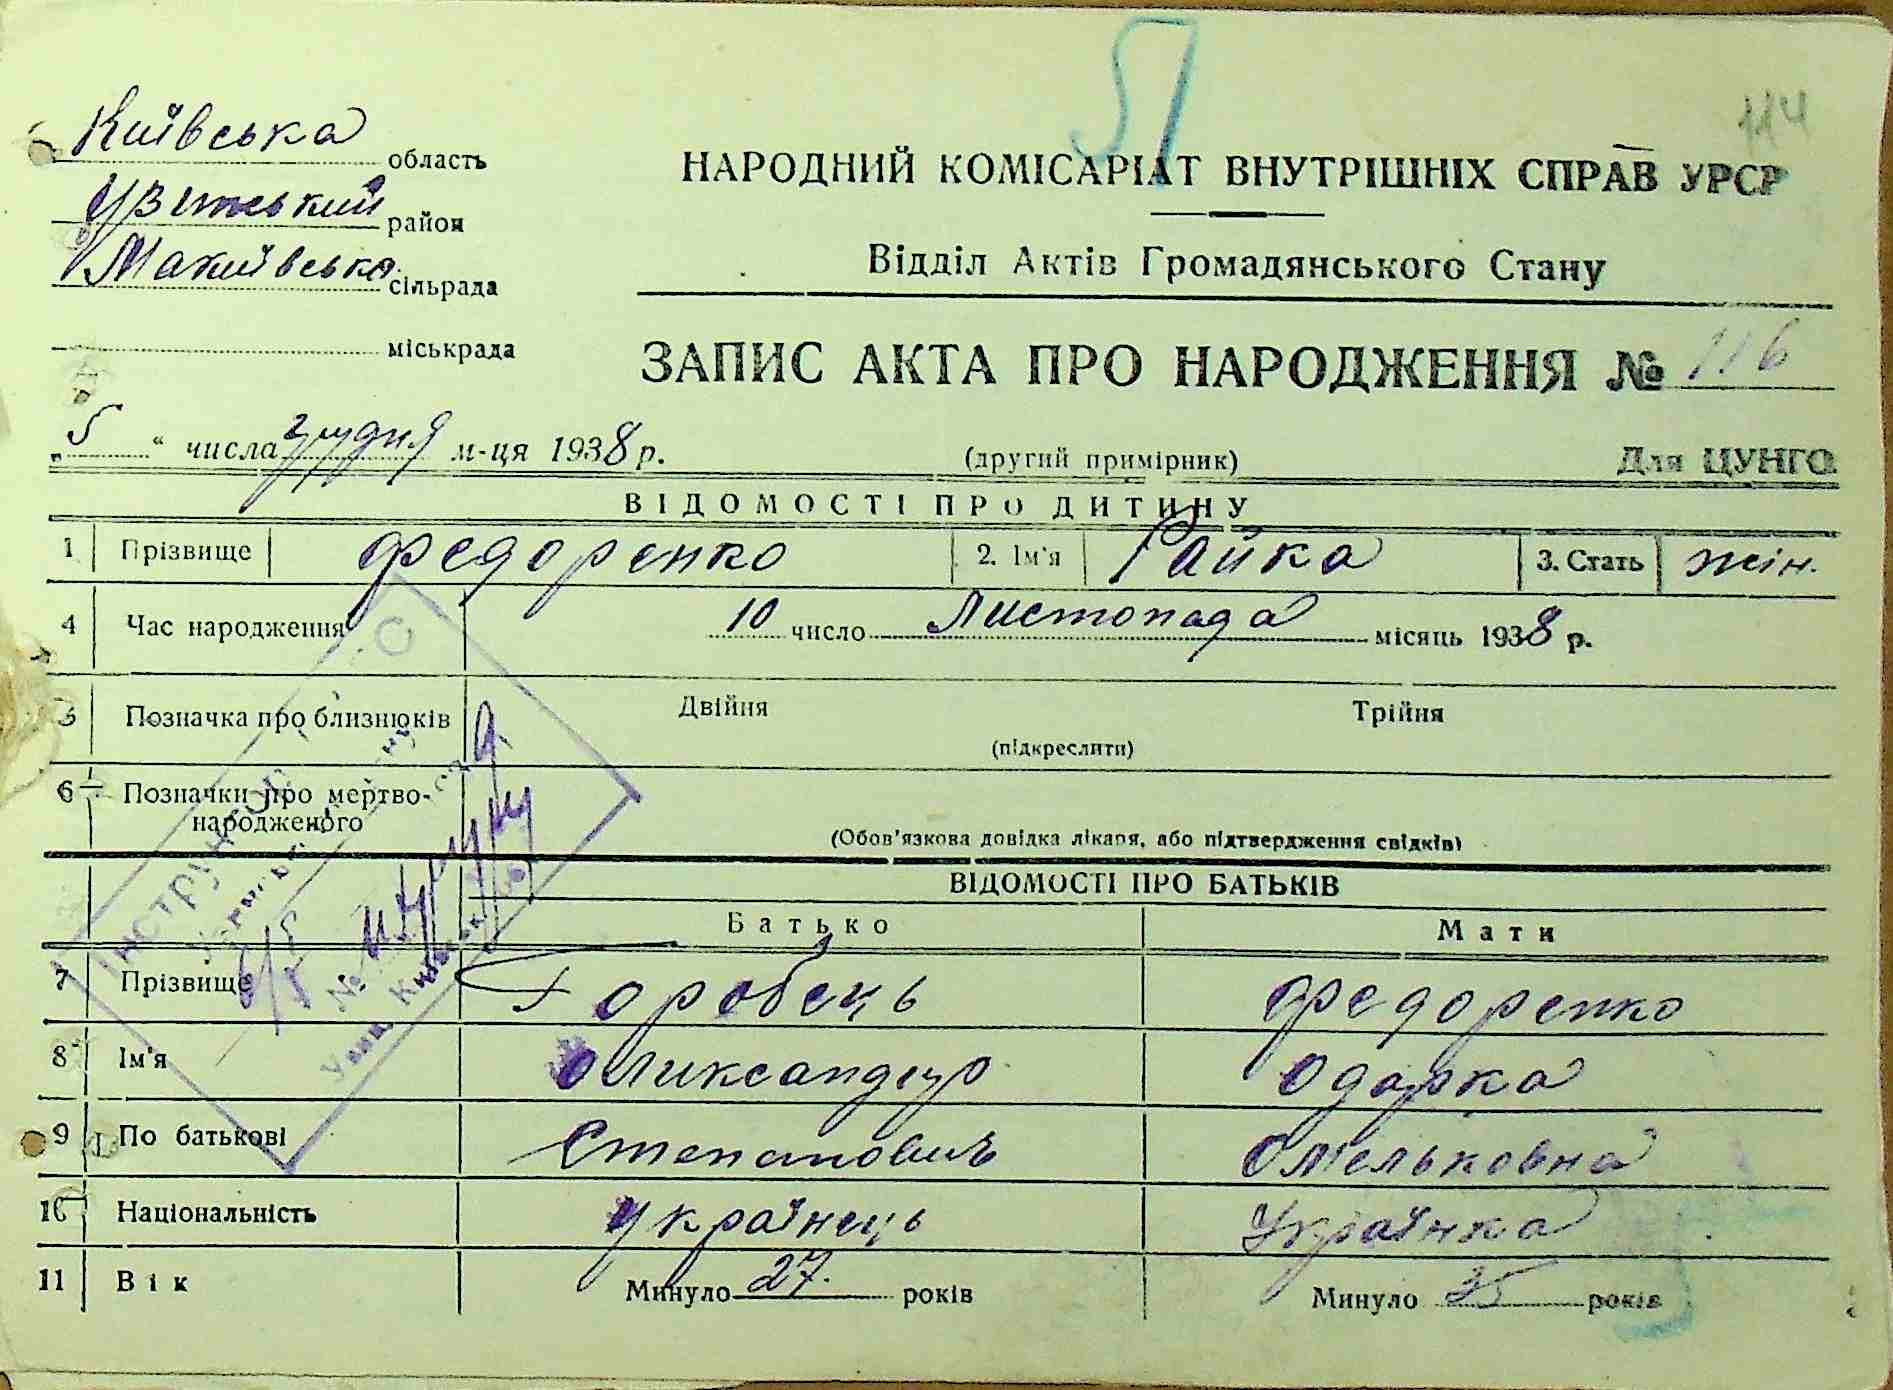 114
Київська область
район
сільрада
міськрада
НАРОДНИЙ КОМІСАРІАТ ВНУТРІШНІХ СПРАВ УРСР
Відділ Актів Громадянського Стану
ЗАПИС АКТА ПРО НАРОДЖЕННЯ № 116
„ 5 “ числа грудня м-ця 1938 р.
(другий примірник)
Для ЦУНГО
ВІДОМОСТІ ПРО ДИТИНУ
1 Прізвище Федоренко 2. Ім'я Райка 3. Стать жін.
4 Час народження 10 число Листопада місяць 1938 р.
5 Позначка про близнюків Двійня Трійня
(підкреслити)
6 Позначки про мертво-
народженого
(Обов'язкова довідка лікаря, або підтвердження свідків)
ВІДОМОСТІ ПРО БАТЬКІВ
Батько Мати
7 Прізвище Горобець Федоренко
8 Ім'я Оликсандер Одарка
9 По батькові Степанович Омельковна
10 Національність Українець Українка
11 Вік Минуло 27. років Минуло 35 років